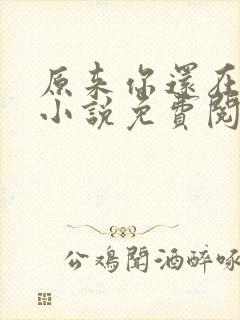 原来你還在
小說免費閱
公鸡聞酒醉啄